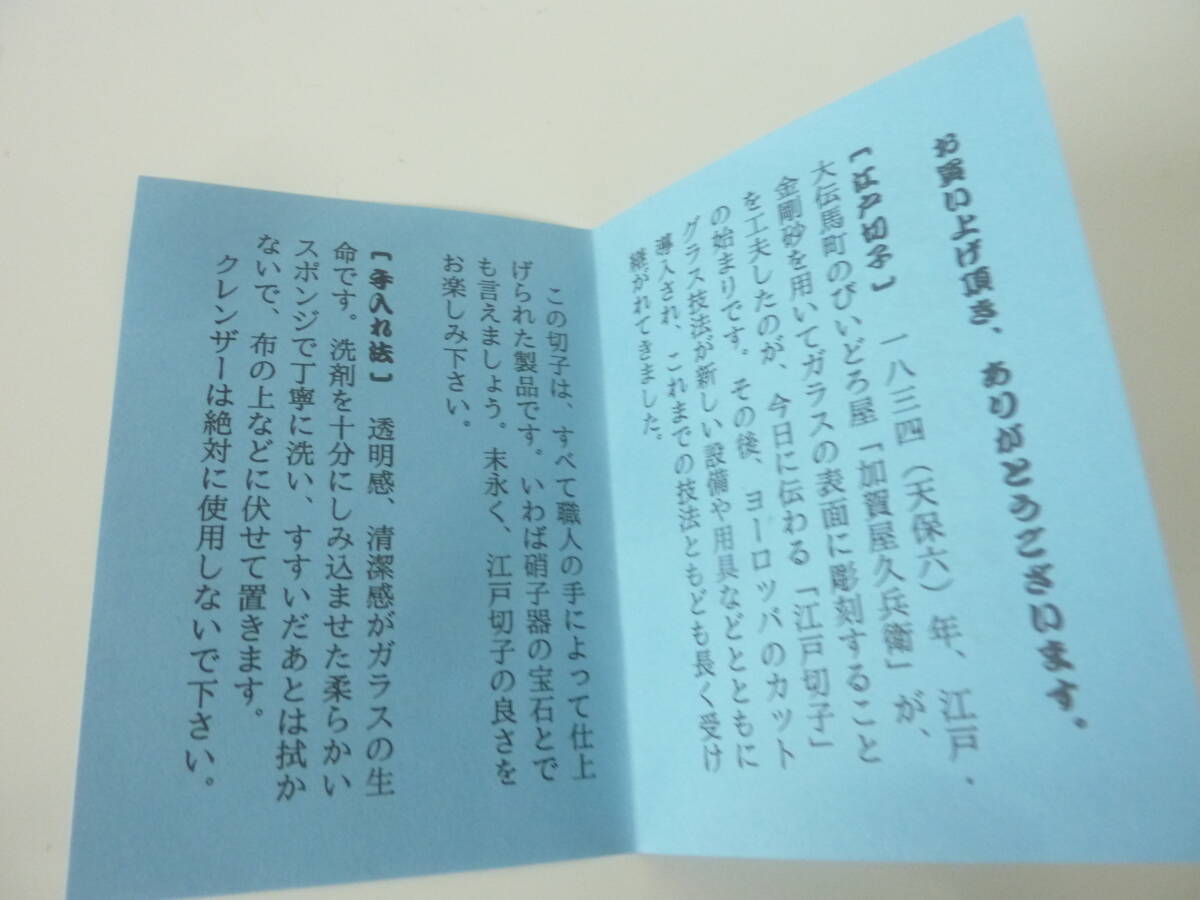 お買い上げ頂き、ありがとうございます。
〔江戸切子〕　一八三四（天保六）年、江戸、
大伝馬町のびいどろ屋「加賀屋久兵衛」が、
金剛砂を用いてガラスの表面に彫刻すること
を工夫したのが、今日に伝わる「江戸切子」
の始まりです。その後、ヨーロッパのカット
グラス技法が新しい設備や用具などとともに
導入され、これまでの技法ともども長く受け
継がれてきました。
この切子は、すべて職人の手によって仕上
げられた製品です。いわば硝子器の宝石とで
も言えましょう。末永く、江戸切子の良さを
お楽しみ下さい。
〔手入れ法〕　透明感、清潔感がガラスの生
命です。洗剤を十分にしみ込ませた柔らかい
スポンジで丁寧に洗い、すすいだあとは拭か
ないで、布の上などに伏せて置きます。
クレンザーは絶対に使用しないで下さい。